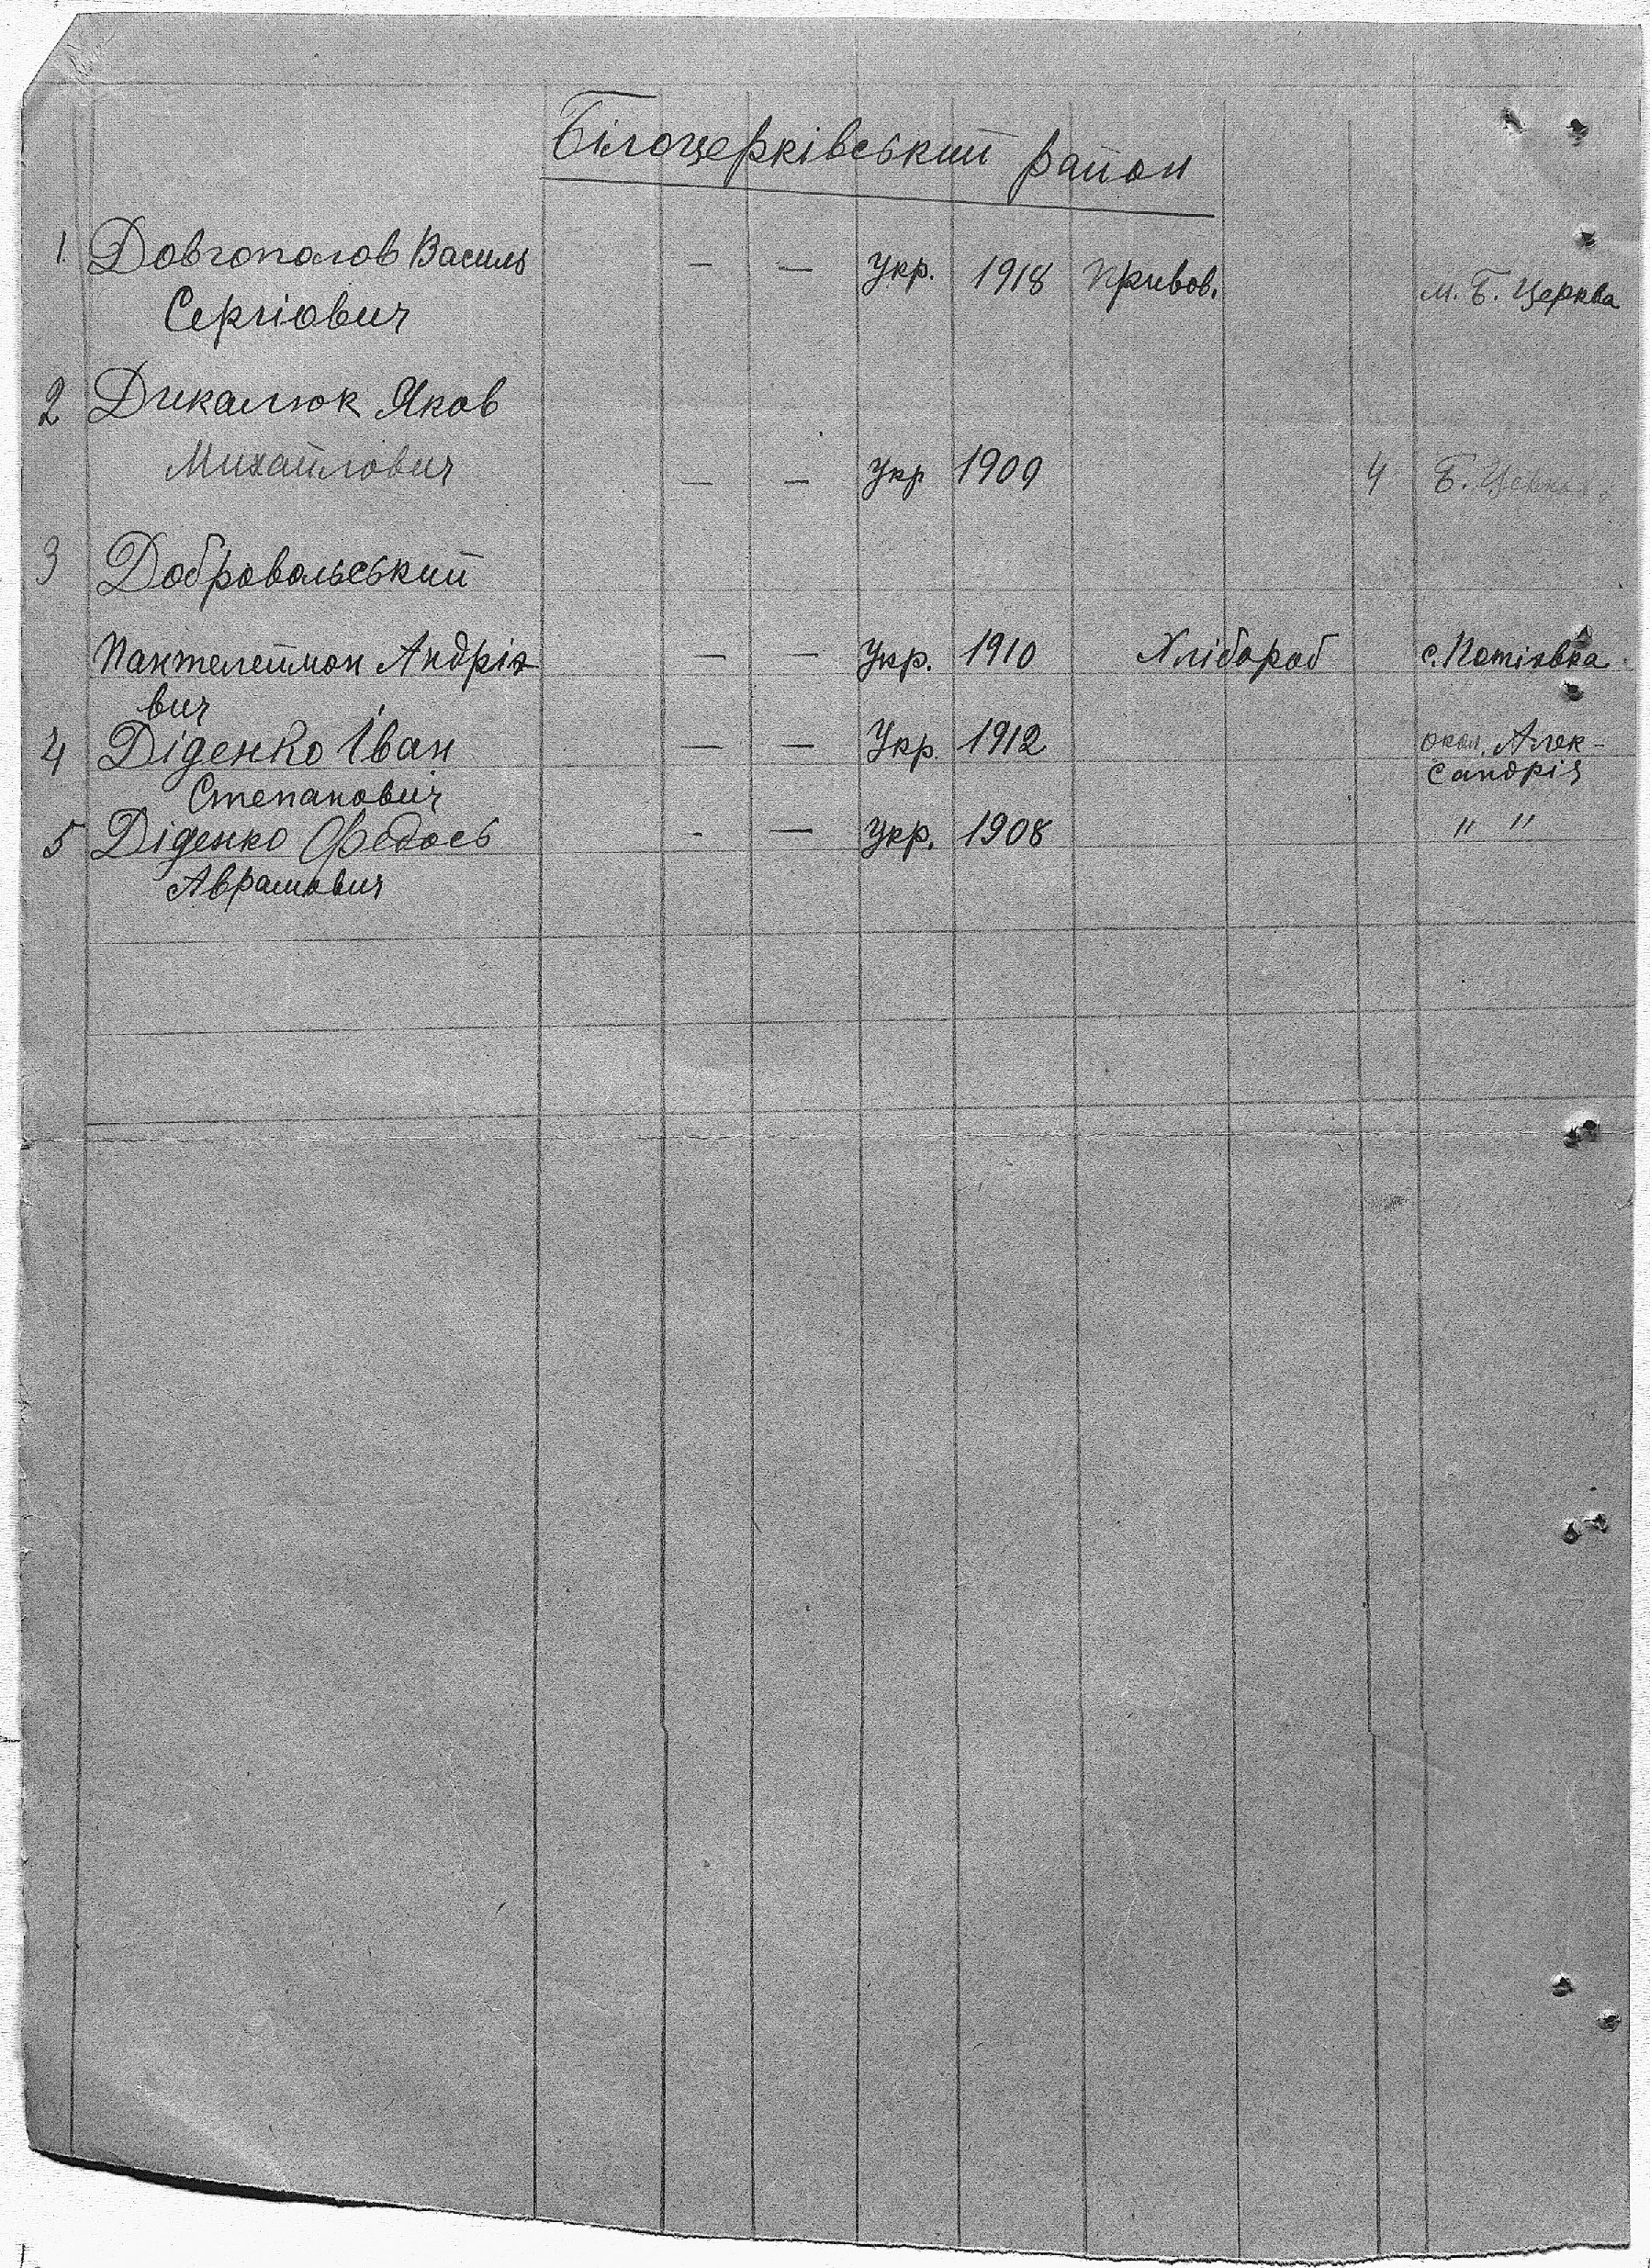 Білоцерківський район
1. Довгополов Василь — — Укр. 1918 Привов. м. Б. Церква
Сергіович
2 Дикалюк Яков
Михайлович — — Укр 1909 4 Б. Церква
3 Добровольський
Пантелеймон Андріє — — Укр. 1910 Хлібороб с. Потіївка
вич
4 Діденко Іван — — Укр. 1912 окол. Алек-
Степанович сандрія
5 Діденко Федось - — Укр. 1908 " "
Аврамович